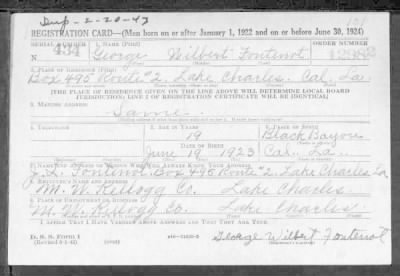 Dup-2-20-43
REGISTRATION CARD—(Men born on or after January 1, 1922 and on or before June 30, 1924)
SERIAL NUMBER 1. NAME (Print) ORDER NUMBER
N 434 George Wilbert Fontenot
2. PLACE OF RESIDENCE (Print)
Box 495 Route #2 Lake Charles. Cal. La.
(THE PLACE OF RESIDENCE GIVEN ON THE LINE ABOVE WILL DETERMINE LOCAL BOARD
JURISDICTION; LINE 2 OF REGISTRATION CERTIFICATE WILL BE IDENTICAL)
3. MAILING ADDRESS
Same
4. TELEPHONE 5. AGE IN YEARS 6. PLACE OF BIRTH
19 Black Bayou
DATE OF BIRTH
June 19 1923 Cal. La.
7. NAME AND ADDRESS OF PERSON WHO WILL ALWAYS KNOW YOUR ADDRESS
Fontenot Box 495 Route #2. Lake Charles La
8. EMPLOYER'S NAME AND ADDRESS
M. W. Kellogg Co. Lake Charles
9. PLACE OF EMPLOYMENT OR BUSINESS
M. W. Kellogg Co. Lake Charles
I AFFIRM THAT I HAVE VERIFIED ABOVE ANSWERS AND THAT THEY ARE TRUE.
D. S. S. Form 1
(over) George Wilbert Fontenot